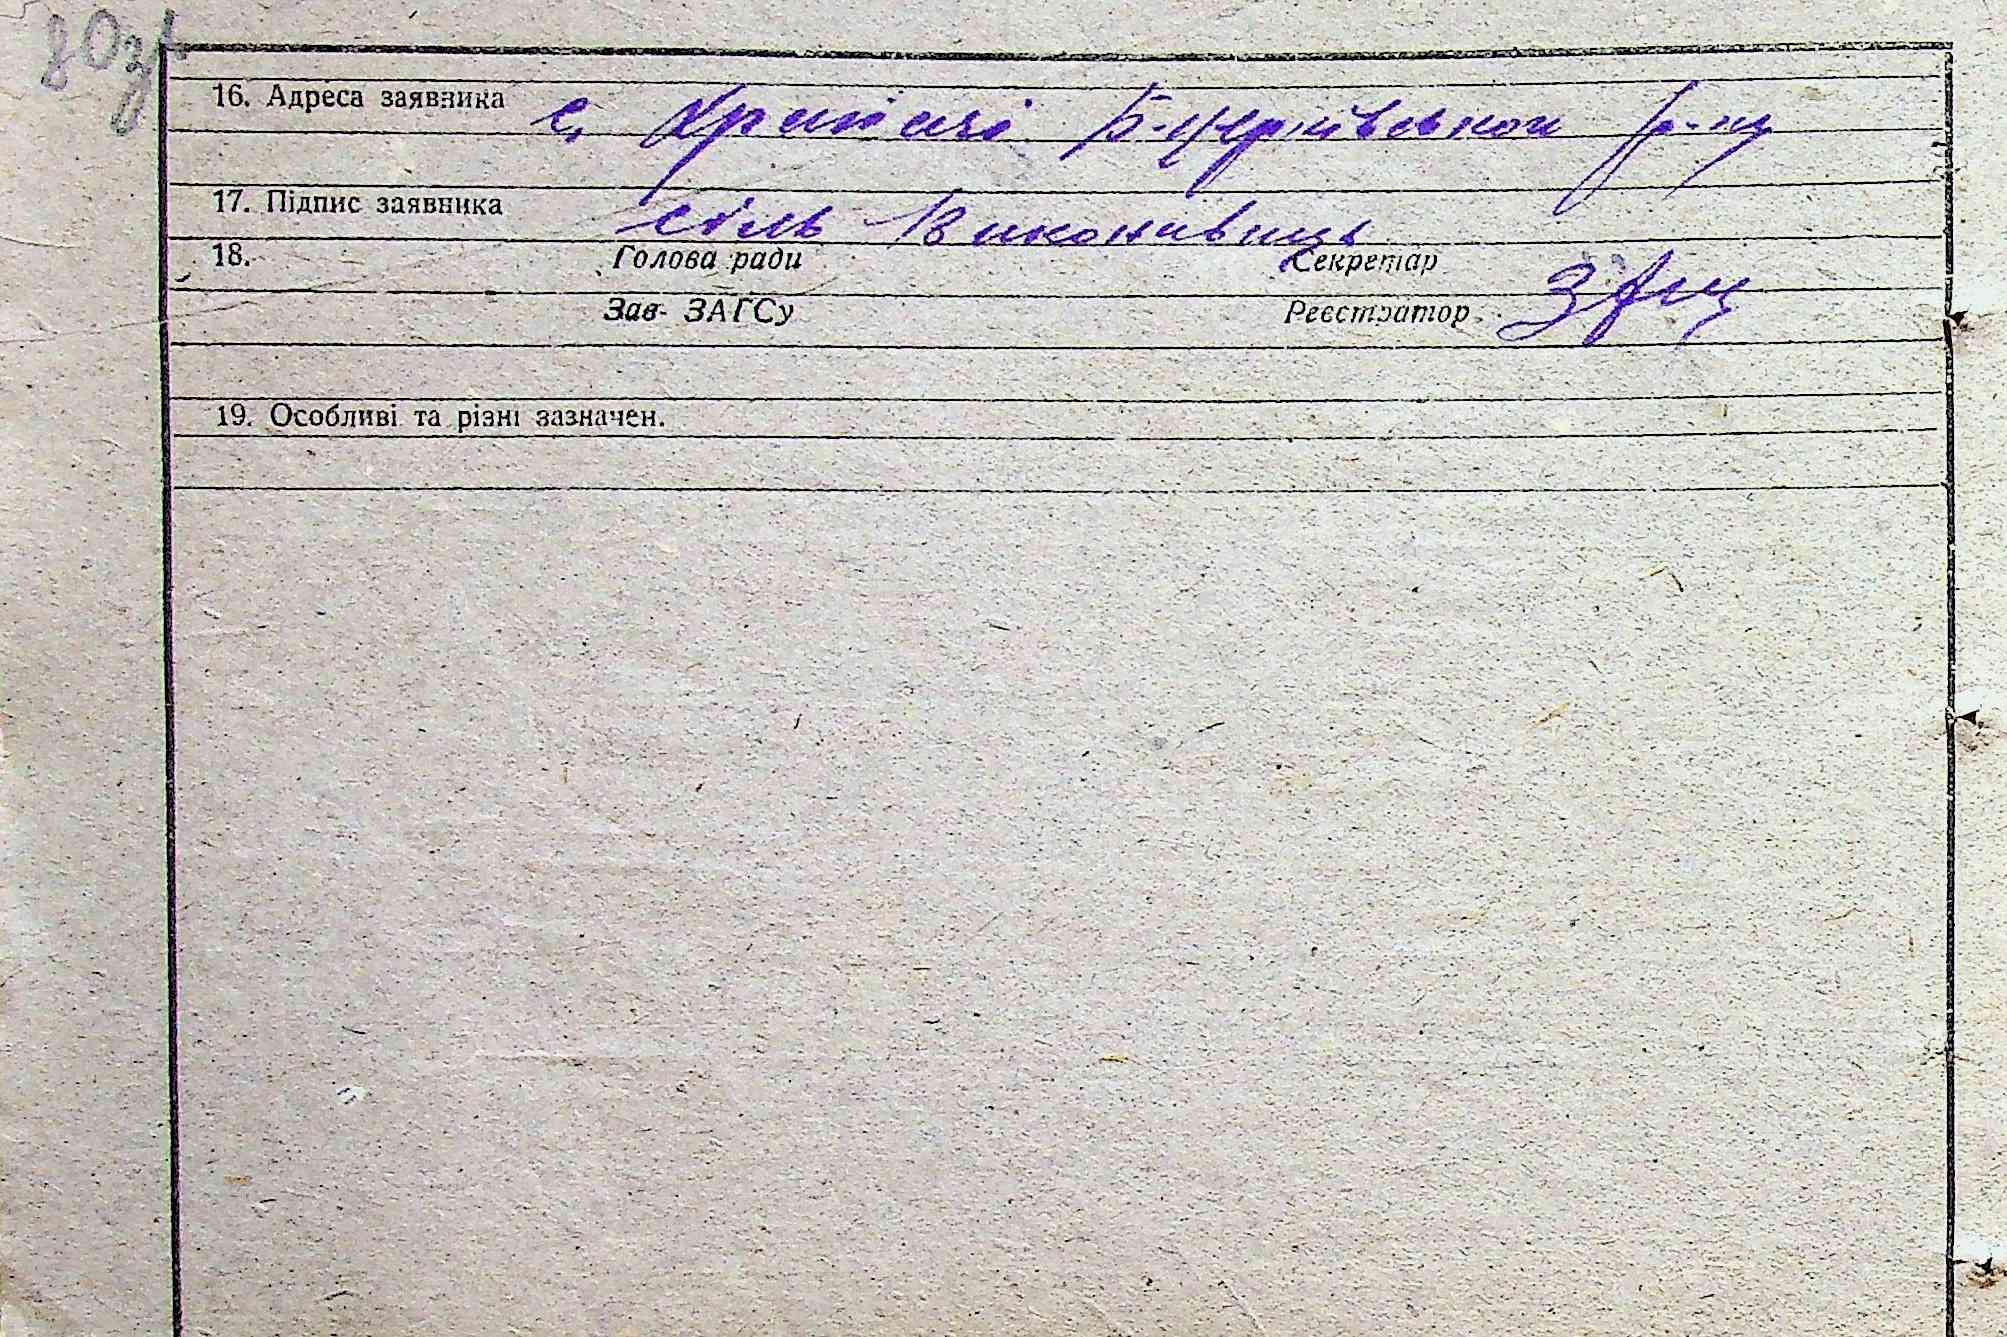 16. Адреса заявника с. Храпачі Б-Церківського р-ну
17. Підпис заявника сіль Виконавиць
18. Голова ради Секретар
Зав- ЗАГСу Реєстратор
19. Особливі та різні зазначен.